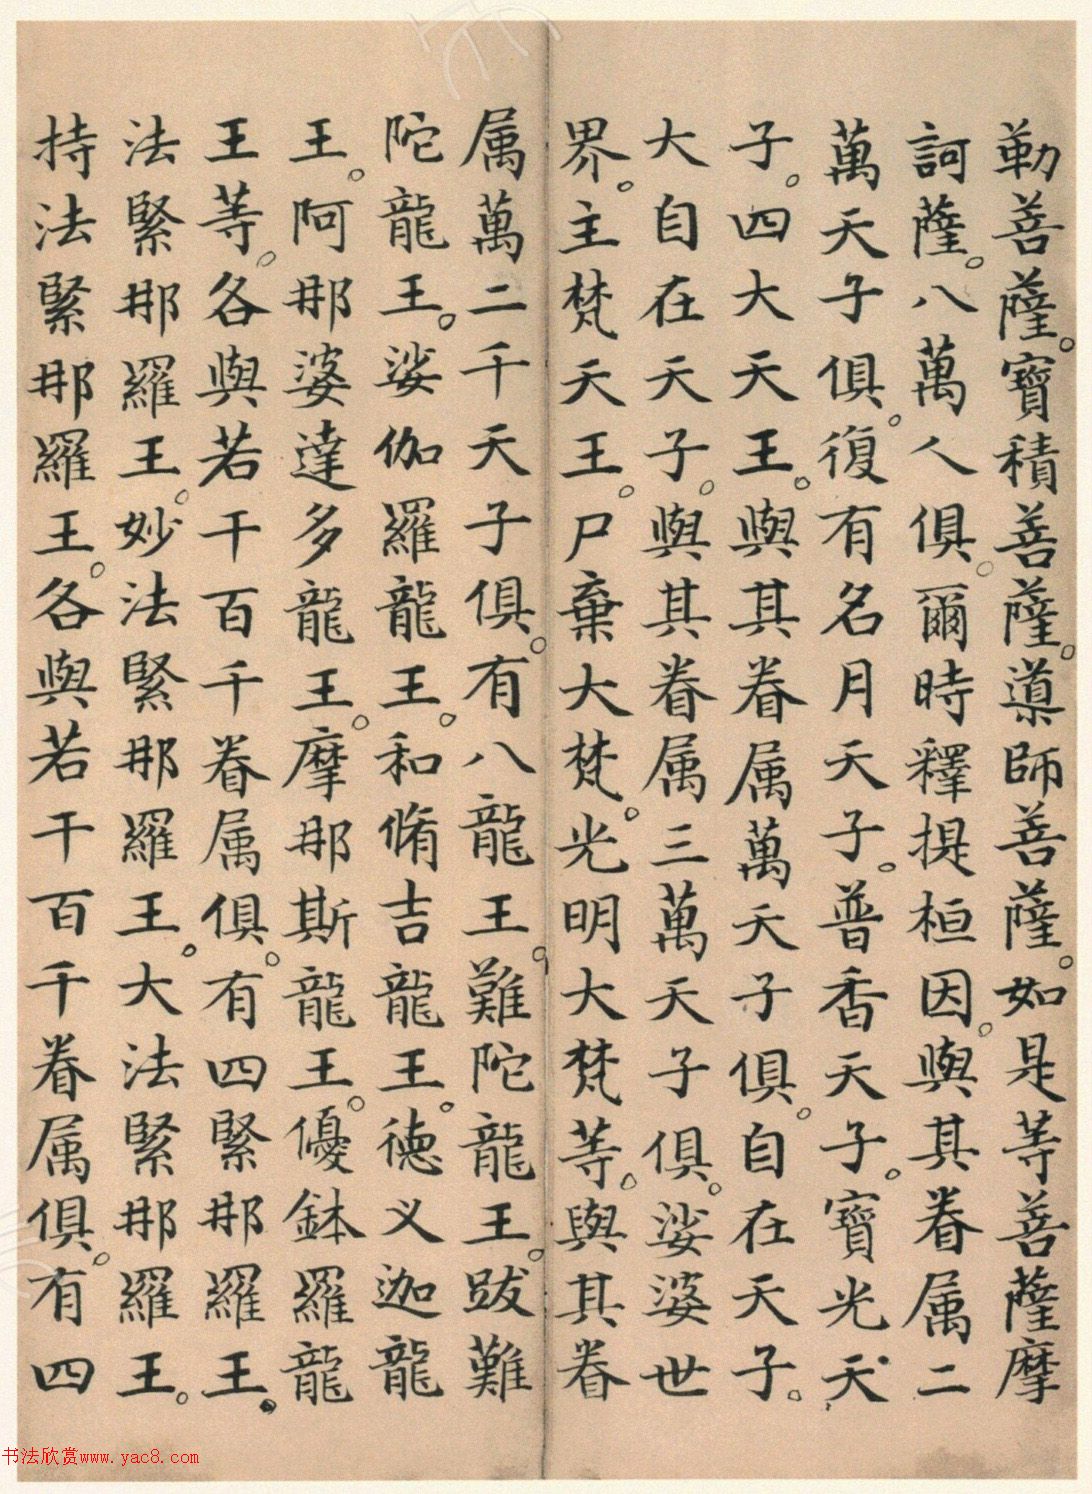 勒菩薩。寶積菩薩。導師菩薩。如是等菩薩摩
訶薩。八萬人俱。爾時釋提桓因。與其眷属二
萬天子俱。復有名月天子。普香天子。寶光天
子。四大天王。與其眷属萬天子俱。自在天子。
大自在天子。與其眷属三萬天子俱。娑婆世
界。主梵天王。尸棄大梵。光明大梵等。與其眷
属萬二千天子俱。有八龍王。難陀龍王。跋難
陀龍王。娑伽羅龍王。和脩吉龍王。德义迦龍
王。阿那婆達多龍王。摩那斯龍王。優鉢羅龍
王等。各與若干百千眷属俱。有四緊那羅王。
法緊那羅王。妙法緊那羅王。大法緊那羅王。
持法緊那羅王。各與若干百千眷属俱。有四
书法欣赏www.yac8.com